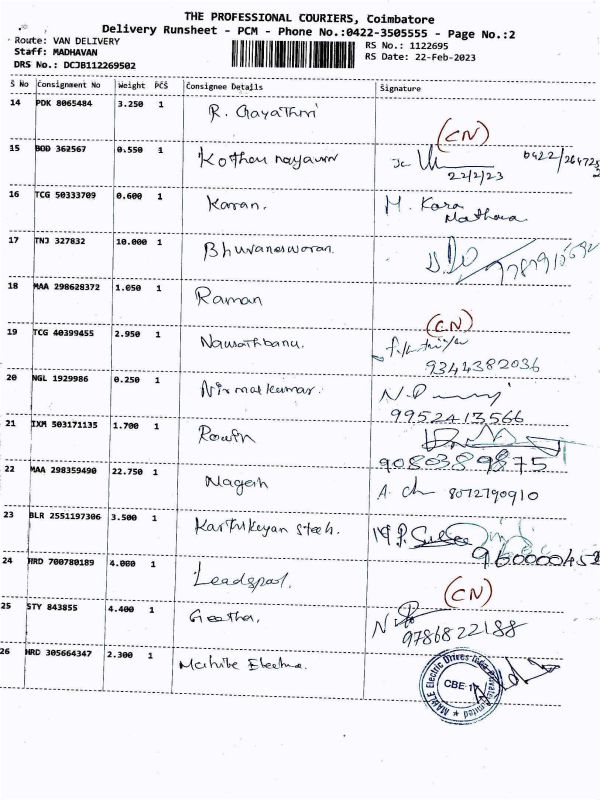 THE PROFESSIONAL COURIERS, Coimbatore
Delivery Runsheet - PCM - Phone No.:0422-3505555 - Page No.:2
Route: VAN DELIVERY
Staff: MADHAVAN
DRS No.: DCJB112269502
RS No.: 1122695
RS Date: 22-Feb-2023
S No Consignment No Weight PCS Consignee Details Signature
14 PDK 8065484 3.250 1 R. Gayathri
(CN)
15 BOD 362567 0.550 1
22/2/23
16 TCG 50333709 0.600 1 Karan. M. Kara
17 TNJ 327832 10.000 1 Bhuvaneswaran.
18 MAA 298628372 1.050 1 Raman
(CN)
19 TCG 40399455 2.950 1 Nawrathbanu.
9344382036
20 NGL 1929986 0.250 1 Nirmalkumar.
9952413566
21 IXM 503171135 1.700 1
9080389875
22 MAA 298359490 22.750 1 Nagesh 8072790910
23 BLR 2551197306 3.500 1 Karthikeyan
24 HRD 700780189 4.000 1
(CN)
25 STY 843855 4.400 1 Geetha.
9786822188
26 HRD 305664347 2.300 1
MAHLE Electric Drives India Private Limited
CBE-17